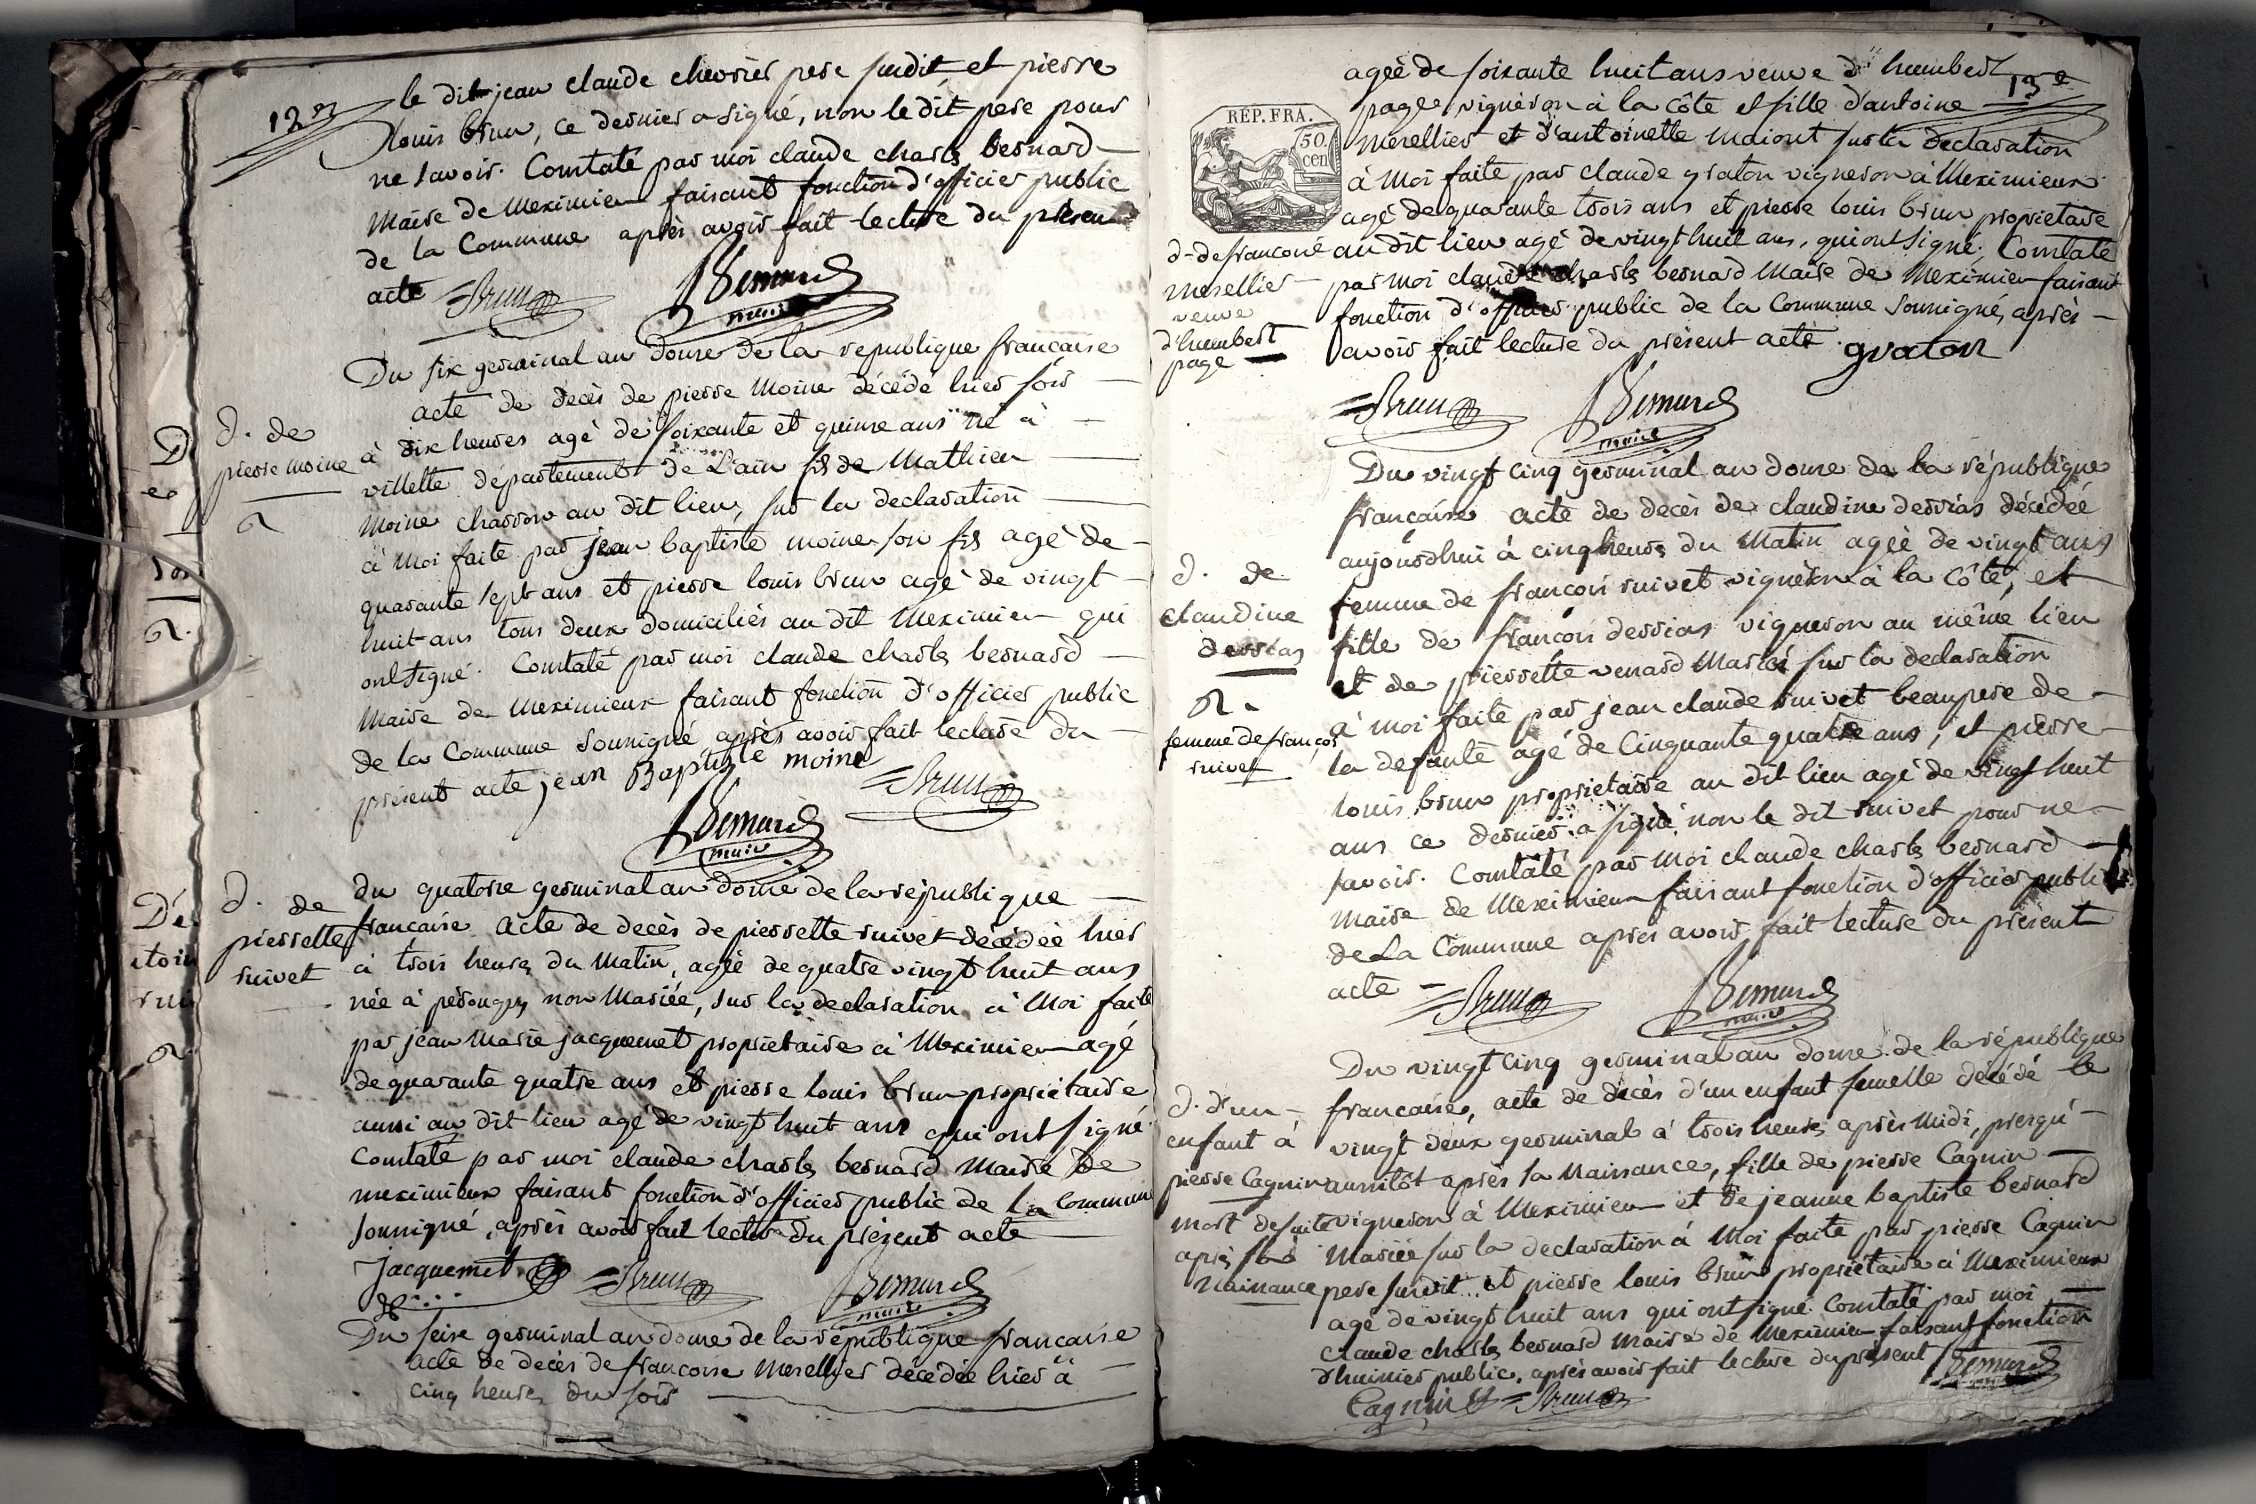 12e
le dit jean claude chevrier pere susdit et pierre
louis brun, ce dernier a signé, non le dit pere pour
ne savoir. Constaté par moi claude charle bernard
Maire de Meximieu faisant fonction d'officier public
de la Commune après avoir fait lecture du présent
acte Brun Bernard
maire
Du six germinal an douze de la republique française
acte de decès de pierre moine décédé hier soir
à dix heures agé de soixante et quinze ans né à
villette département de L'ain fils de Mathieu
moine charron au dit lieu, sur la declaration
à moi faite par jean baptiste moine son fils agé de
quarante sept ans et pierre louis brun agé de vingt
huit ans tous deux domiciliés au dit Meximieu qui
ont signé. Constaté par moi claude charle bernard
Maire de Meximieux faisant fonction d'officier public
de la Commune soussigné après avoir fait lecture du
présent acte jean Baptiste moine Brun
Bernard
maire
d. de
pierre moine
du quatorze germinal an douze de la république
française acte de decès de pierrette rivet décédée hier
à trois heures du Matin, agée de quatre vingt huit ans
née à pérouges non Mariée, sur la declaration à Moi faite
par jean Marie jacquemet propriétaire à Meximieu agé
de quarante quatre ans et pierre louis brun propriétaire
aussi au dit lieu agé de vingt huit ans qui ont signé
Constaté par moi claude charle bernard Maire de
meximieux faisant fonction d'officier public de la Commune
soussigné, après avoir fait lecture du présent acte
jacquemet Brun Bernard
maire
d. de
pierrette
rivet
Du seize germinal an douze de la république française
acte de decès de françoise Merellier décédée hier à
cinq heures du soir
13e
RÉP. FRA.
50.
cen
agée de soixante huit ans veuve d'humbert
page vigneron à la côte et fille d'antoine
Merellier et d'antoinette Maiont sur la declaration
à Moi faite par claude graton vigneron à Meximieux
agé de quarante trois ans et pierre louis brun propriétaire
au dit lieu agé de vingt huit ans, qui ont signé. Constaté
par moi claude charle bernard Maire de Meximieu faisant
fonction d'officier public de la Commune soussigné, après
avoir fait lecture du présent acte graton
Brun Bernard
maire
d. de françoise
merellier
veuve
d'humbert
page
Du vingt cinq germinal an douze de la république
française acte de decès de claudine derrias décédée
aujourdhui à cinq heures du Matin agée de vingt ans
femme de françois rivet vigneron à la Côte, et
fille de françois derrias vigneron au même lieu
et de pierrette venard Mariés sur la declaration
à moi faite par jean claude rivet beaupere de
la defunte agé de Cinquante quatre ans, et pierre
louis brun propriétaire au dit lieu agé de vingt huit
ans ce dernier a signé non le dit rivet pour ne
savoir. Constaté par moi claude charle bernard
Maire de Meximieu faisant fonction d'officier public
de La Commune après avoir fait lecture du présent
acte Brun Bernard
maire
d. de
claudine
derrias
femme de françois
rivet
Du vingt cinq germinal an douze de la république
française, acte de decès d'un enfant femelle décédé le
vingt deux germinal à trois heures après midi, presqu'
aussitôt après sa Naissance, fille de pierre Cagnin
vigneron à Meximieu et de jeanne baptiste bernard
Mariée sur la declaration à Moi faite par pierre Cagnin
pere susdit et pierre louis brun propriétaire à Meximieux
agé de vingt huit ans qui ont signé Constaté par moi
Claude charle bernard Maire de Meximieu faisant fonction
d'huissier public, après avoir fait lecture du présent Bernard
Cagnin Brun
d. d'un
enfant à
pierre Cagnin
mort de suite
après sa
Naissance